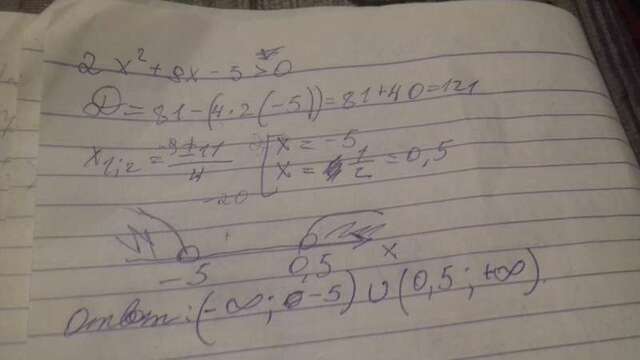 2x² + 9x - 5 > 0
D = 81 - (4·2(-5)) = 81 + 40 = 121
x₁;₂ = -9±11/4 [x = -5
x = 1/2 = 0,5
-20
+
-5 0,5 x
Ответ: (-∞; -5) ∪ (0,5; +∞).